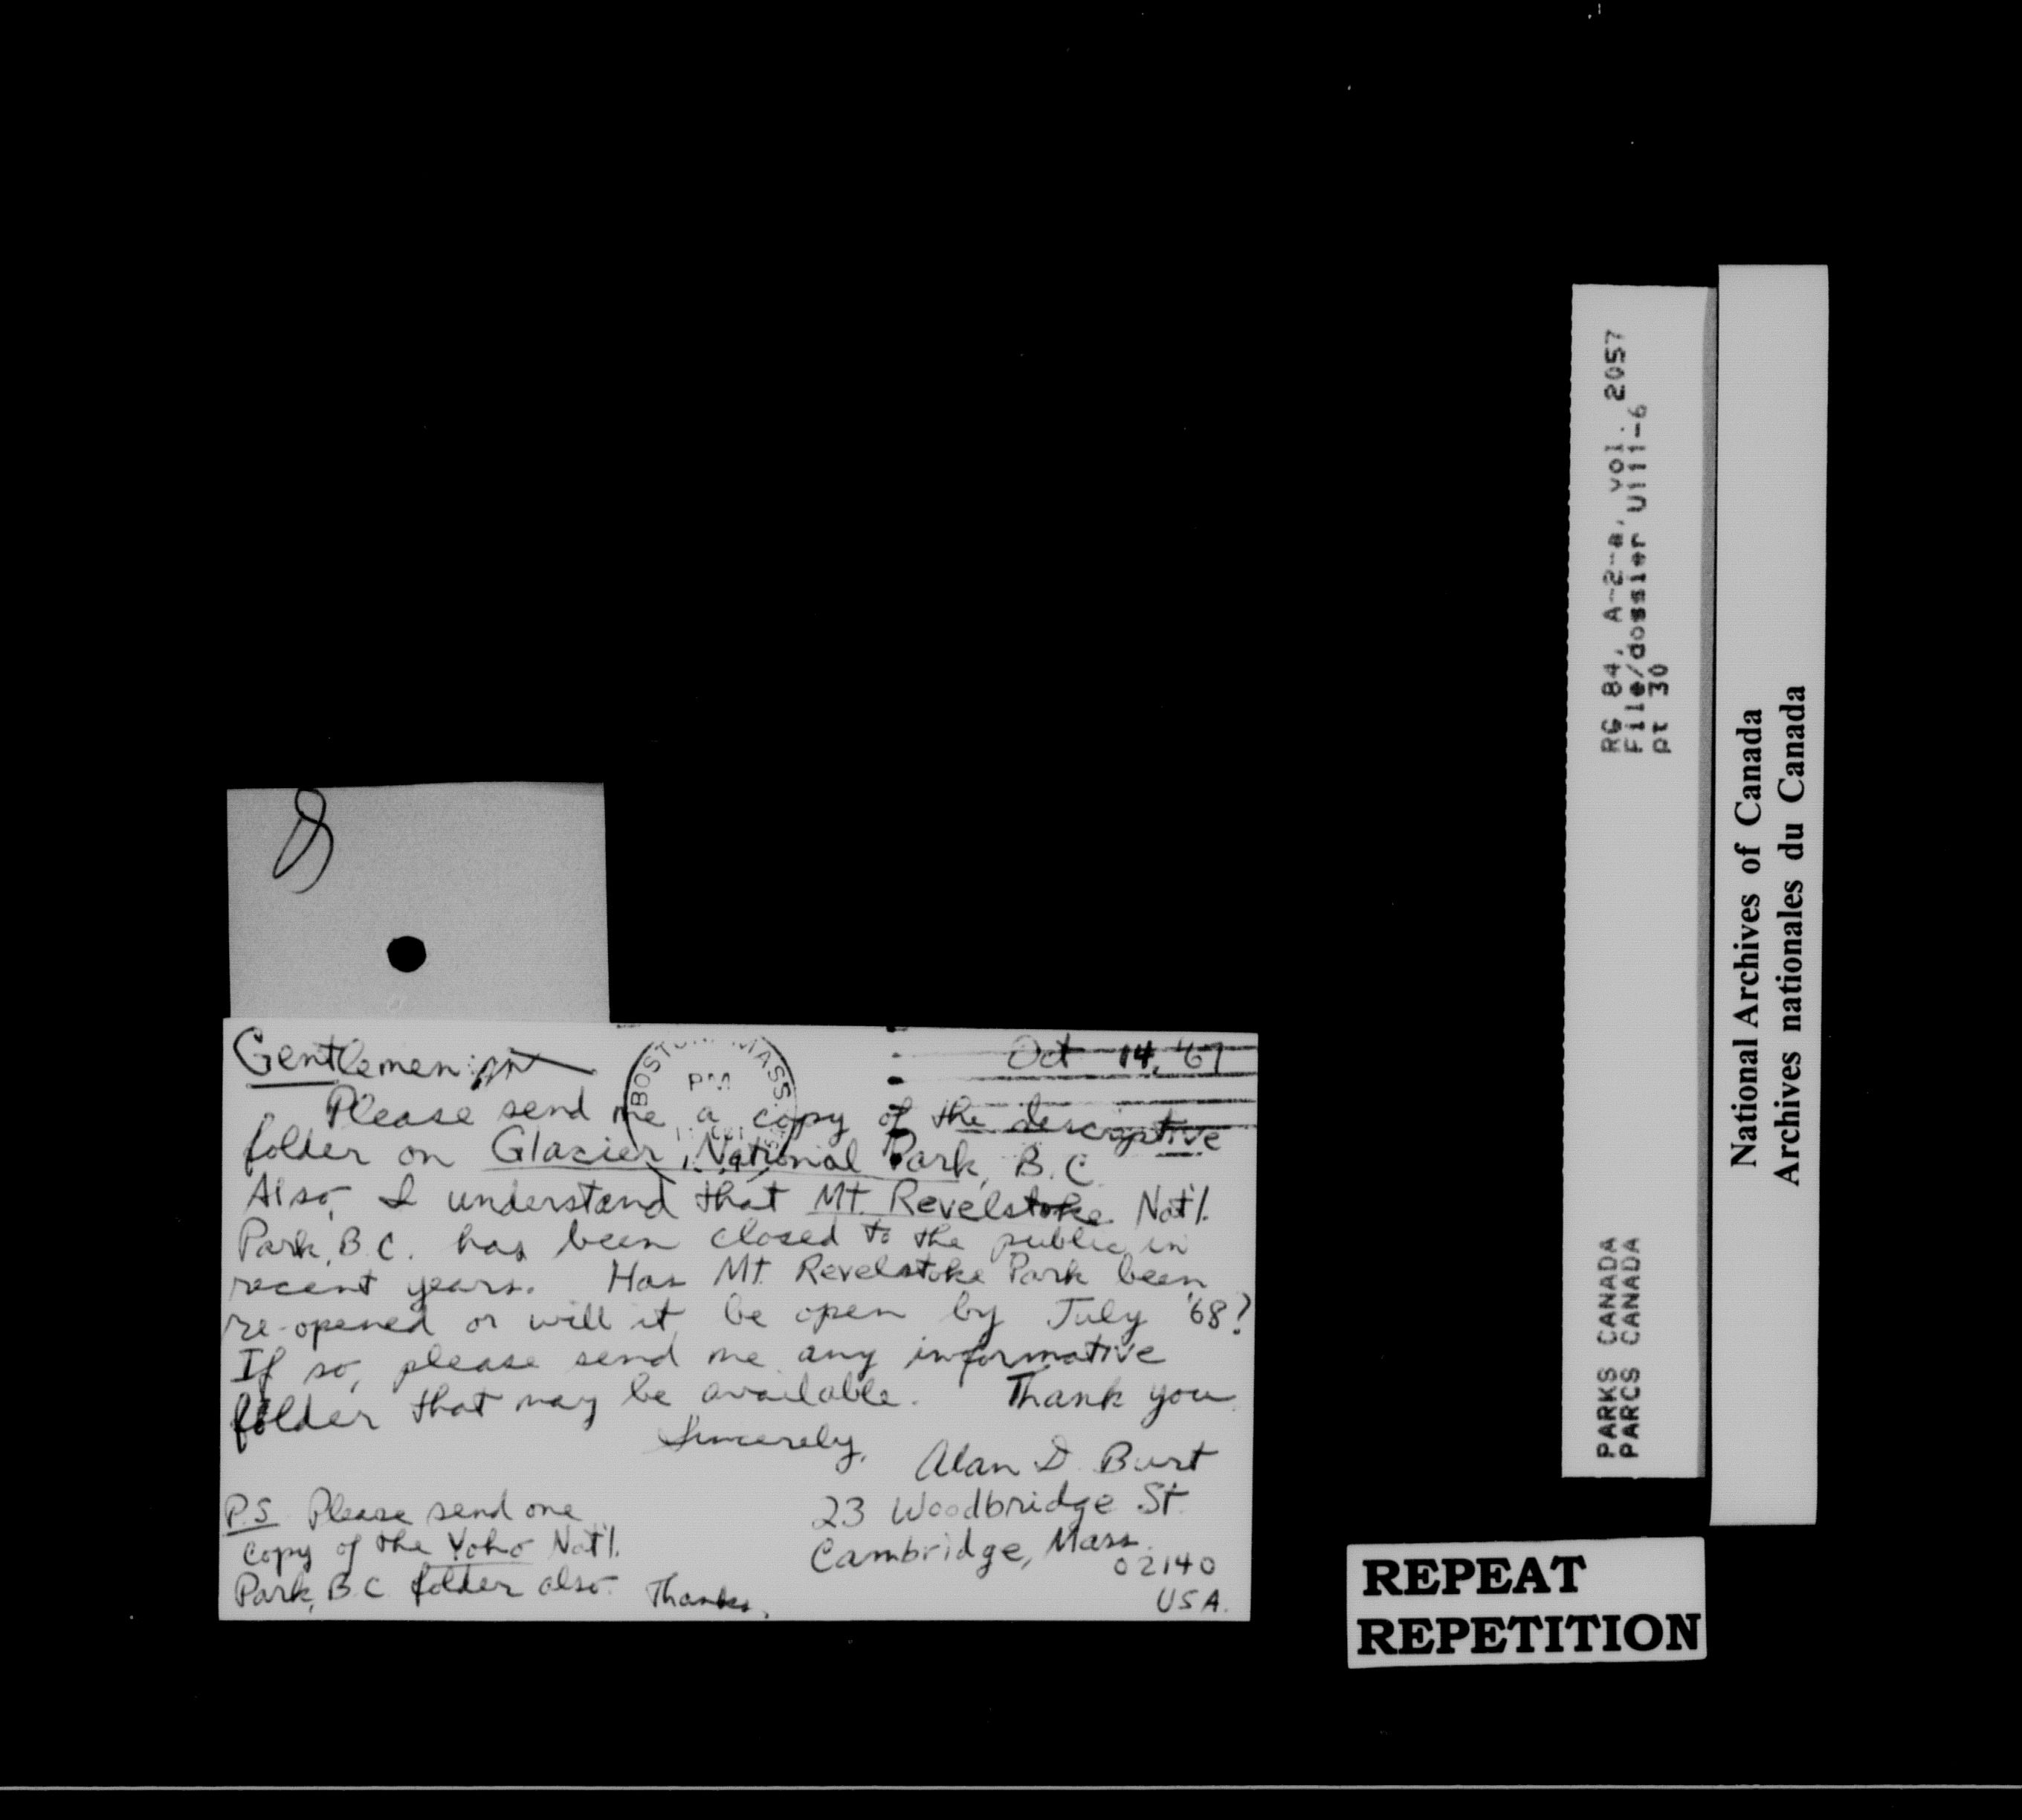 Gentlemen:
Oct 14, '67
BOSTON, MASS.
PM
Please send me a copy of the descriptive
folder on Glacier National Park, B.C.
Also, I understand that Mt. Revelstoke Nat'l.
Park, B.C. has been closed to the public in
recent years. Has Mt. Revelstoke Park been
re-opened or will it be open by July '68?
If so, please send me any informative
folder that may be available. Thank you.
Sincerely,
Alan D. Burt
23 Woodbridge St.
Cambridge, Mass.
02140
USA.
P.S. Please send one
copy of the Yoho Nat'l.
Park, B.C folder also. Thanks.
RG 84, A-2-a, vol. 2057
File/dossier U111-6
pt 30
PARKS CANADA
PARCS CANADA
National Archives of Canada
Archives nationales du Canada
REPEAT
REPETITION